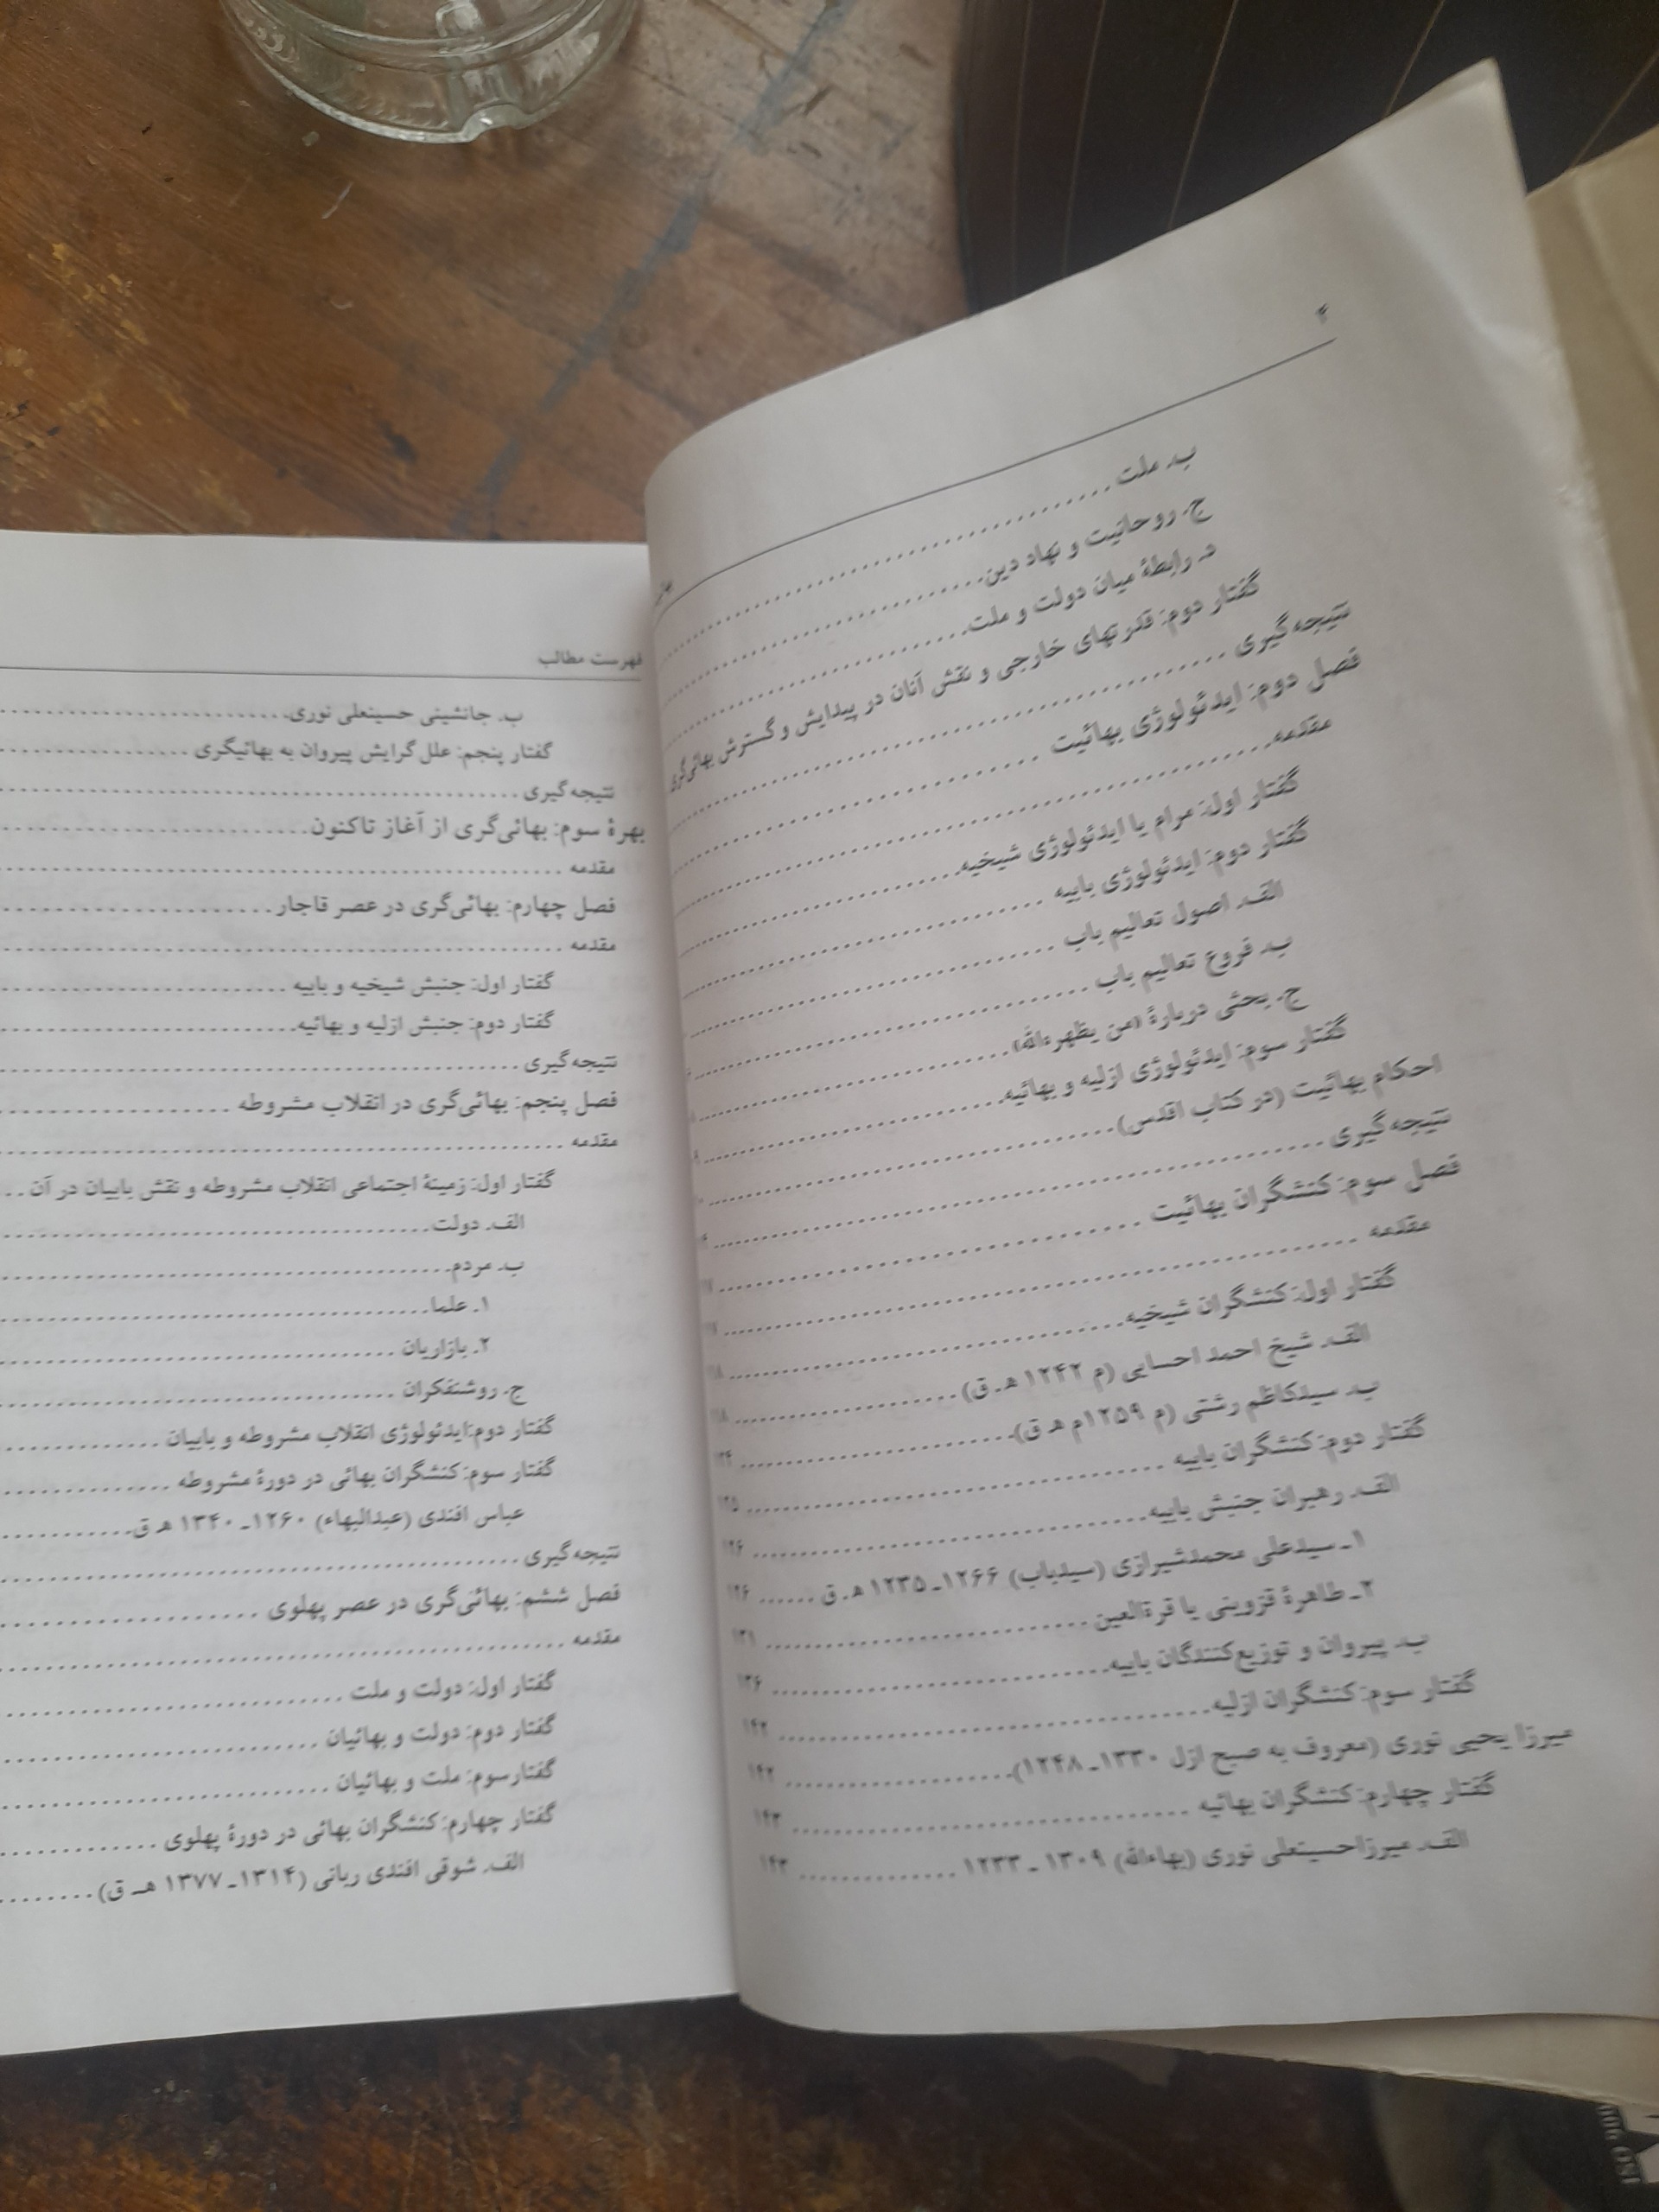 ۴
ب‌ـ ملت
ج‌ـ روحانیت و نهاد دین
د‌ـ رابطهٔ میان دولت و ملت
گفتار دوم: قدرتهای خارجی و نقش آنان در پیدایش و گسترش بهائی‌گری
نتیجه‌گیری
فصل دوم: ایدئولوژی بهائیت
مقدمه
گفتار اول: مرام یا ایدئولوژی شیخیه
گفتار دوم: ایدئولوژی بابیه
الف‌ـ اصول تعالیم باب
ب‌ـ فروع تعالیم باب
ج‌ـ بحثی دربارهٔ (من یظهره‌الله)
گفتار سوم: ایدئولوژی ازلیه و بهائیه
احکام بهائیت (در کتاب اقدس)
نتیجه‌گیری
فصل سوم: کنشگران بهائیت
مقدمه
گفتار اول: کنشگران شیخیه
الف‌ـ شیخ احمد احسایی (م ۱۲۴۲ هـ.ق)
ب‌ـ سیدکاظم رشتی (م ۱۲۵۹م هـ ق)
گفتار دوم: کنشگران بابیه
الف‌ـ رهبران جنبش بابیه
۱ـ سیدعلی محمدشیرازی (سیدباب) ۱۲۶۶ـ ۱۲۳۵ هـ.ق
۲ـ طاهرهٔ قزوینی یا قرةالعین
ب‌ـ پیروان و توزیع‌کنندگان بابیه
گفتار سوم: کنشگران ازلیه
میرزا یحیی نوری (معروف به صبح ازل ۱۳۳۰ـ ۱۲۴۸)
گفتار چهارم: کنشگران بهائیه
الف‌ـ میرزاحسینعلی نوری (بهاءالله) ۱۳۰۹ ـ ۱۲۳۳
فهرست مطالب
ب‌ـ جانشینی حسینعلی نوری
گفتار پنجم: علل گرایش پیروان به بهائیگری
نتیجه‌گیری
بهرهٔ سوم: بهائی‌گری از آغاز تاکنون
مقدمه
فصل چهارم: بهائی‌گری در عصر قاجار
مقدمه
گفتار اول: جنبش شیخیه و بابیه
گفتار دوم: جنبش ازلیه و بهائیه
نتیجه‌گیری
فصل پنجم: بهائی‌گری در انقلاب مشروطه
مقدمه
گفتار اول: زمینهٔ اجتماعی انقلاب مشروطه و نقش بابیان در آن
الف‌ـ دولت
ب‌ـ مردم
۱ـ علما
۲ـ بازاریان
ج‌ـ روشنفکران
گفتار دوم:ایدئولوژی انقلاب مشروطه و بابیان
گفتار سوم: کنشگران بهائی در دورهٔ مشروطه
عباس افندی (عبدالبهاء) ۱۲۶۰ـ ۱۳۴۰ هـ ق
نتیجه‌گیری
فصل ششم: بهائی‌گری در عصر پهلوی
مقدمه
گفتار اول: دولت و ملت
گفتار دوم: دولت و بهائیان
گفتارسوم: ملت و بهائیان
گفتار چهارم: کنشگران بهائی در دورهٔ پهلوی
الف‌ـ شوقی افندی ربانی (۱۳۱۴ـ ۱۳۷۷ هـ ق)